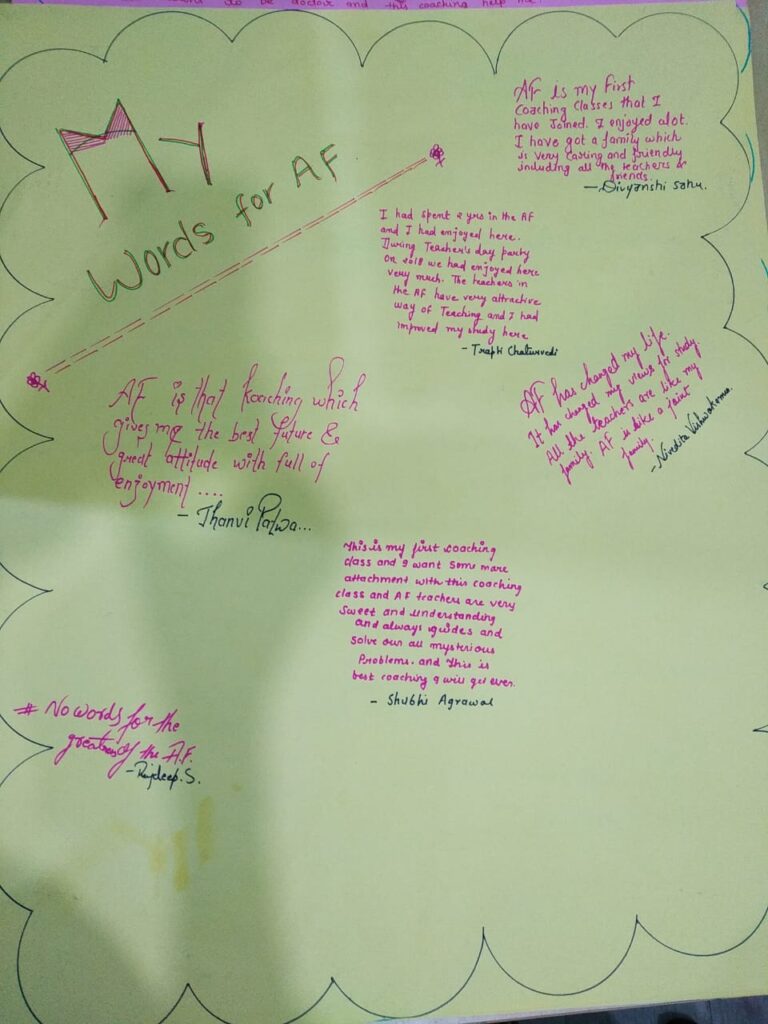 to be doctor and this coaching help me.
My
Words for AF
AF is my first
Coaching Classes that I
have Joined. I enjoyed alot.
I have got a family which
is very caring and friendly
including all the teachers &
friends.
- Divyanshi Sahu.
I had spent 2 yrs in the AF
and I had enjoyed here.
During Teacher's day party
on 2018 we had enjoyed here
very much. The teachers in
the AF have very attractive
way of Teaching and I had
improved my study here
- Trapti Chaturvedi
AF has changed my life.
It has changed my views for study.
All the teachers are like my
family. AF is like a joint
family.
- Nivedita Vishwakarma
AF is that Koaching which
gives me the best future &
great attitude with full of
enjoyment ....
- Jhanvi Patwa...
This is my first coaching
class and I want some more
attachment with this coaching
class and AF teachers are very
sweet and understanding
and always guides and
solve our all mysterious
Problems. and This is
best coaching I will get ever.
- Shubhi Agrawal
# No words for the
of the A.F.
- Rajdeep. S.